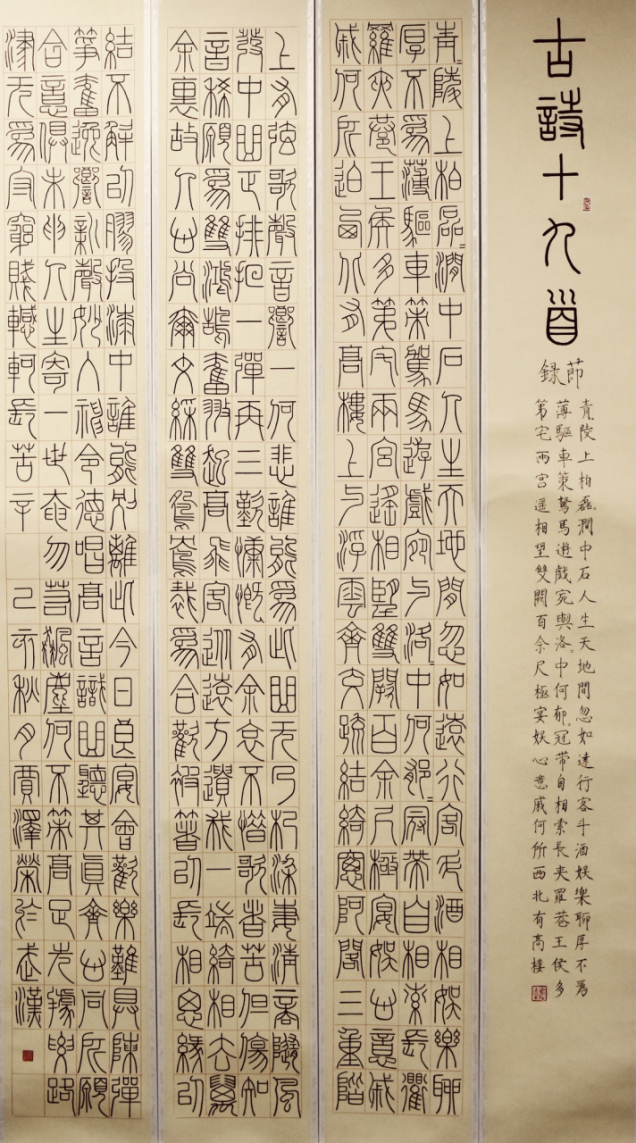 古詩十九首
節録
青陵上柏磊〻澗中石人生天地間忽如遠行客斗酒娛樂聊厚不爲
薄驅車策駑馬遊戲宛與洛〻中何郁〻冠帶自相索長夾羅巷王侯多
第宅兩宮遥相望雙闕百余尺極宴娛心意戚何所西北有高樓
青〻陵上柏磊〻澗中石人生天地間忽如遠行客斗酒相娛樂聊
厚不爲薄驅車策駑馬遊戲宛与洛〻中何郁〻冠帶自相索長衢
羅夾巷王侯多第宅兩宮遙相望雙闕百余尺極宴娛心意戚
戚何所迫西北有高樓上与浮雲齊交疏結綺窗阿閣三重階
上有弦歌聲音響一何悲誰能爲此曲无乃杞梁妻清商隨風
發中曲正徘徊一彈再三歎慷慨有余哀不惜歌者苦但傷知
音稀願爲雙鴻鵠奮翅起高飛客從遠方遺我一端綺相去萬
余裏故人心尚爾文綵雙鴛鴦裁爲合歡被著以長相思緣以
結不解以膠投漆中誰能別離此今日良宴會歡樂難具陳彈
箏奮逸響新聲妙入神令德唱高言識曲聽其真齊心同所願
合意俱未申人生寄一世奄忽若飆塵何不策高足先據要路
津无爲守窮賤轗軻長苦辛 己亥秋月賈澤榮於武漢